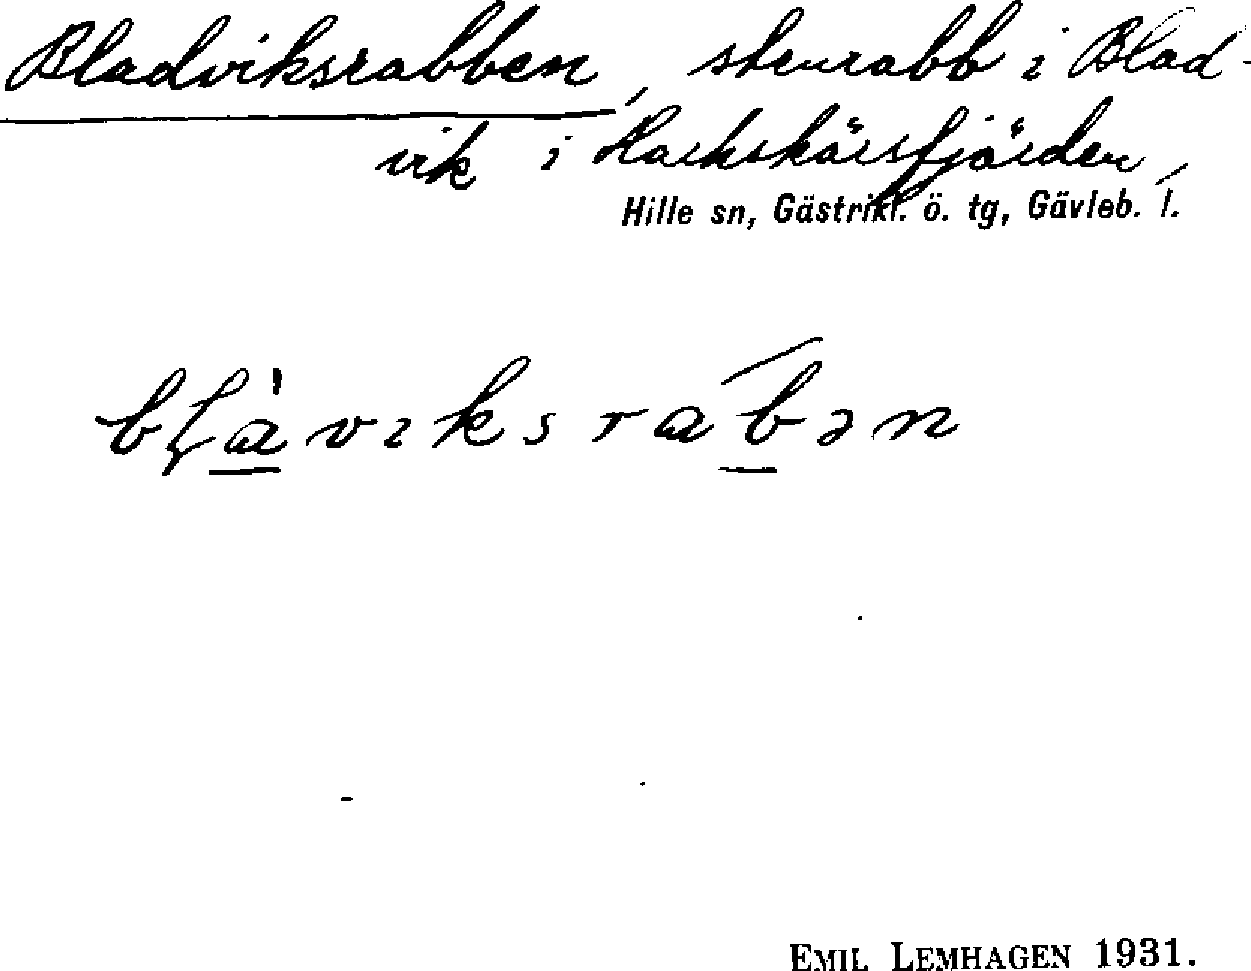 Bladviksrabben, stenrabb i Blad-
vik i Harkskärsfjärden,
Hille sn, Gästrikl. ö. tg, Gävleb. l.
bḷàviksrabən
EMIL LEMHAGEN 1931.